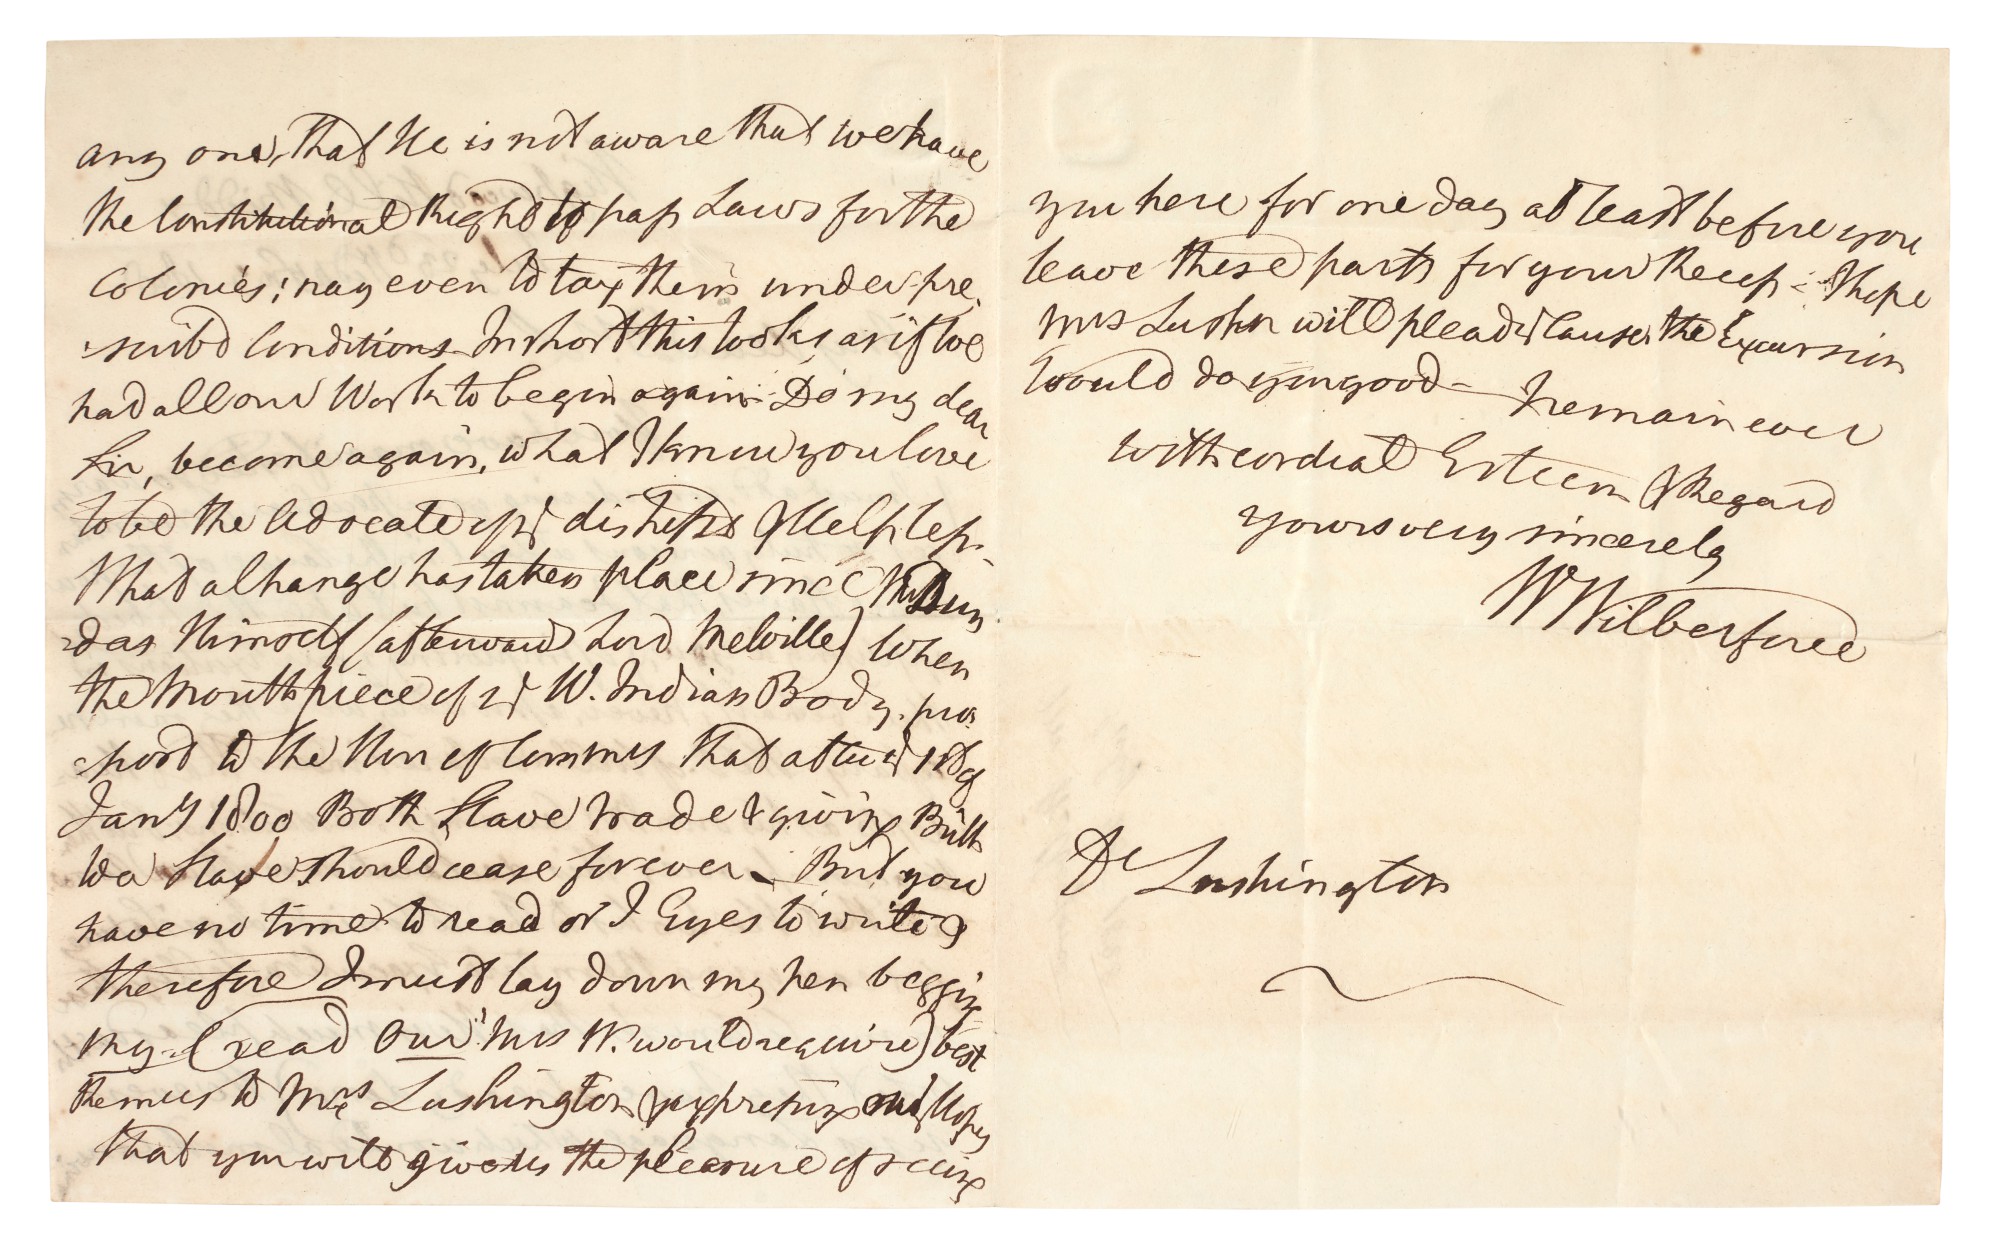 any one, that He is not aware that we have
the Constitutional Right to pass Laws for the
Colonies; nay even to tax them under pre
scribd Conditions. In short this looks as if we
had all our Work to begin again. Do my dear
Sir, become again, what I know you love
to be the Advocate of ye distressd & Helpless.
What a Change has taken place since Mr Dun
das Himself (afterward Lord Melville) when
the Mouth piece of ye W. Indian Body, pro
posd to the Hou of Commns that after ye 1st of
Jany 1800 Both Slave trade & giving Birth
to a Slave should cease forever. But you
have no time to read or I Eyes to write &
therefore I must lay down my pen begging
my (read Our Mrs W. would require) best
to Mrs Lushington & expressing my Hopes
that you will give us the pleasure of seeing
you here for one day at least before you
leave these parts for your Recess - I hope
Mrs Lushn will plead ye Cause, the Excursion
would do you good - I remain ever
with cordial Esteem & Regard
yours very sincerely
W Wilberforce
Dr Lushington